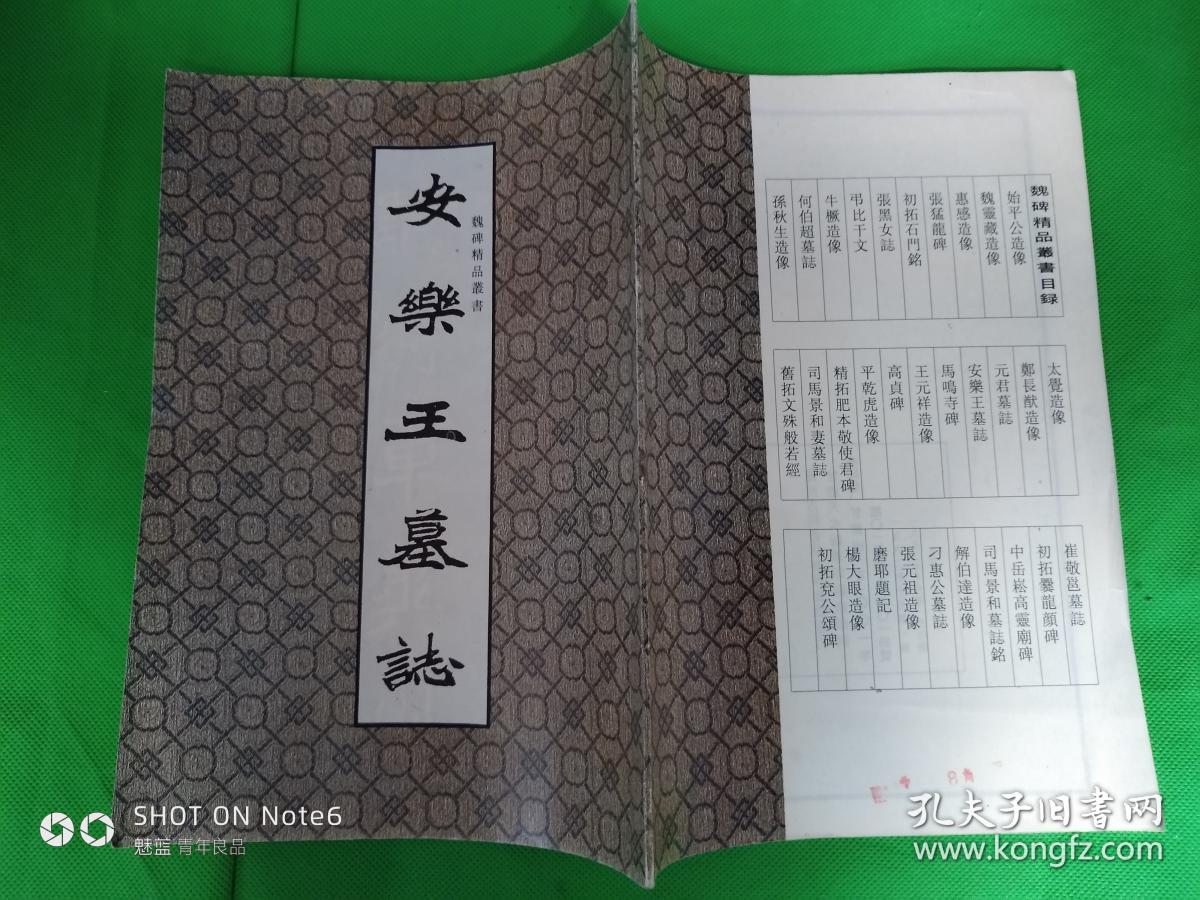 安樂王墓誌
魏碑精品叢書
魏碑精品叢書目録
始平公造像
魏靈藏造像
惠感造像
張猛龍碑
初拓石門銘
張黑女誌
弔比干文
牛橛造像
何伯超墓誌
孫秋生造像
太覺造像
鄭長猷造像
元君墓誌
安樂王墓誌
馬鳴寺碑
王元祥造像
高貞碑
平乾虎造像
精拓肥本敬使君碑
司馬景和妻墓誌
舊拓文殊般若經
崔敬邕墓誌
初拓爨龍顔碑
中岳嵩高靈廟碑
司馬景和墓誌銘
解伯達造像
刁惠公墓誌
張元祖造像
磨耶題記
楊大眼造像
初拓兗公頌碑
SHOT ON Note6
魅蓝 青年良品
孔夫子旧书网
www.kongfz.com